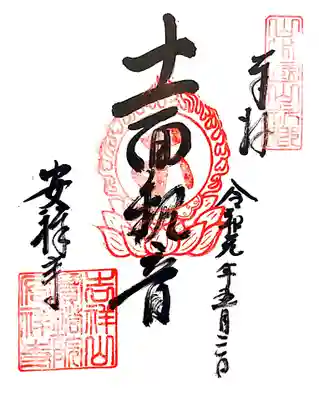 奉拝
令和元年五月二日
十一面観音
安祥寺
吉祥山
寳塔院
安祥寺